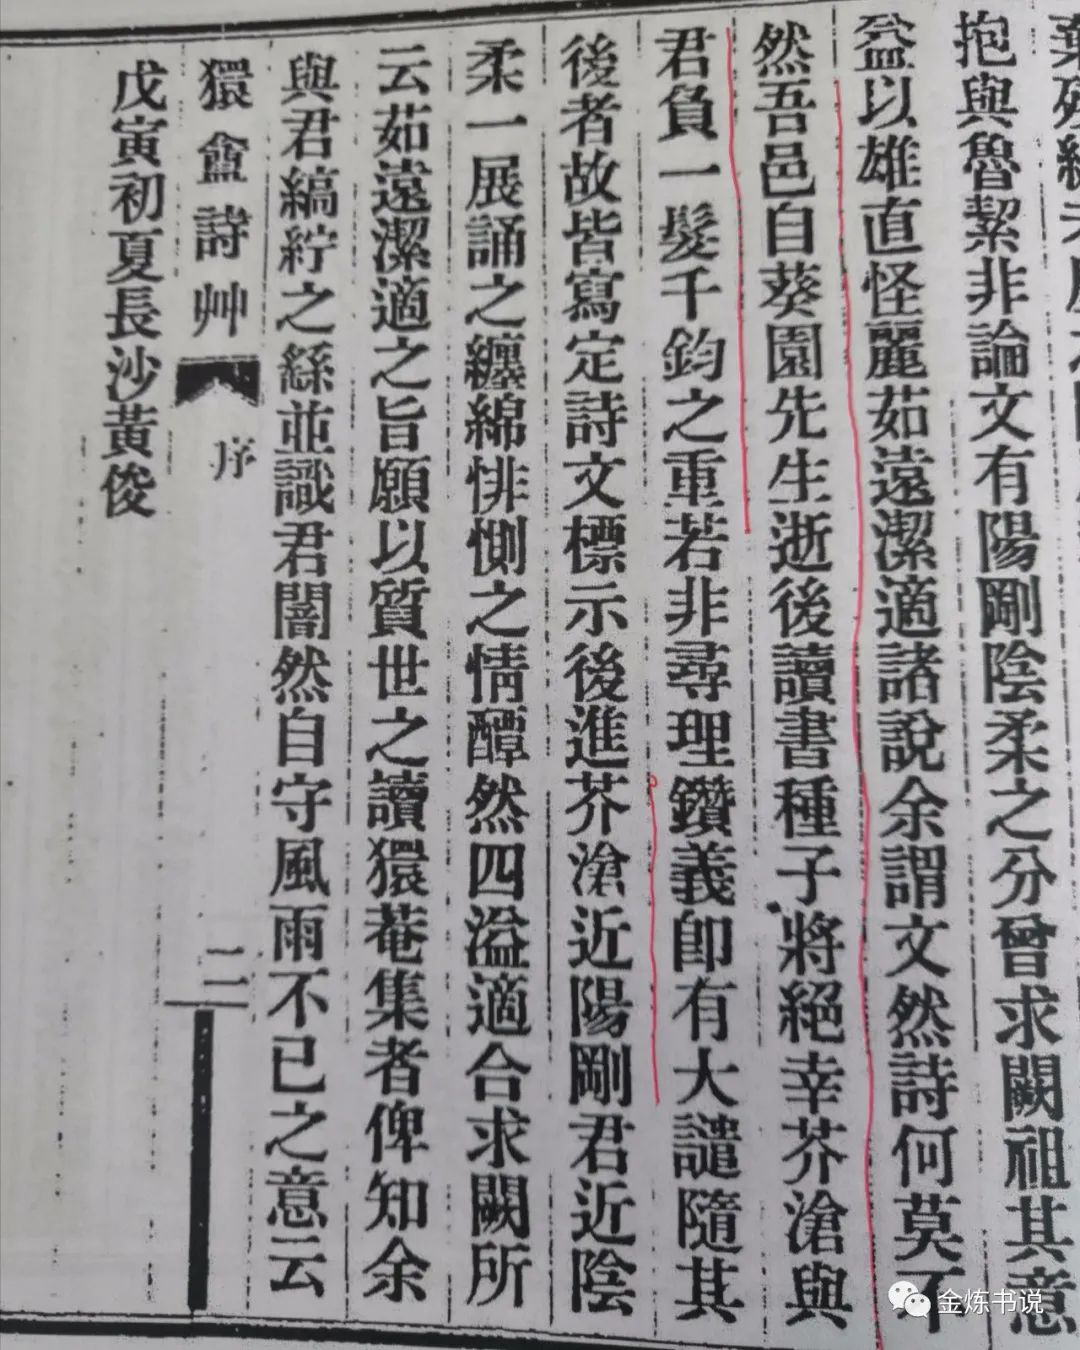 抱與魯絜非論文有陽剛陰柔之分曾求闕祖其意
益以雄直怪麗茹遠潔適諸說余謂文然詩何莫不
然吾邑自葵園先生逝後讀書種子將絕幸芥滄與
君負一髮千鈞之重若非尋理鑽義卽有大譴隨其
後者故皆寫定詩文標示後進芥滄近陽剛君近陰
柔一展誦之纏綿悱惻之情醰然四溢適合求闕所
云茹遠潔適之旨願以質世之讀猨菴集者俾知余
與君縞紵之繇並識君闇然自守風雨不已之意云
猨盦詩艸
序
二
戊寅初夏長沙黃俊
金炼书说